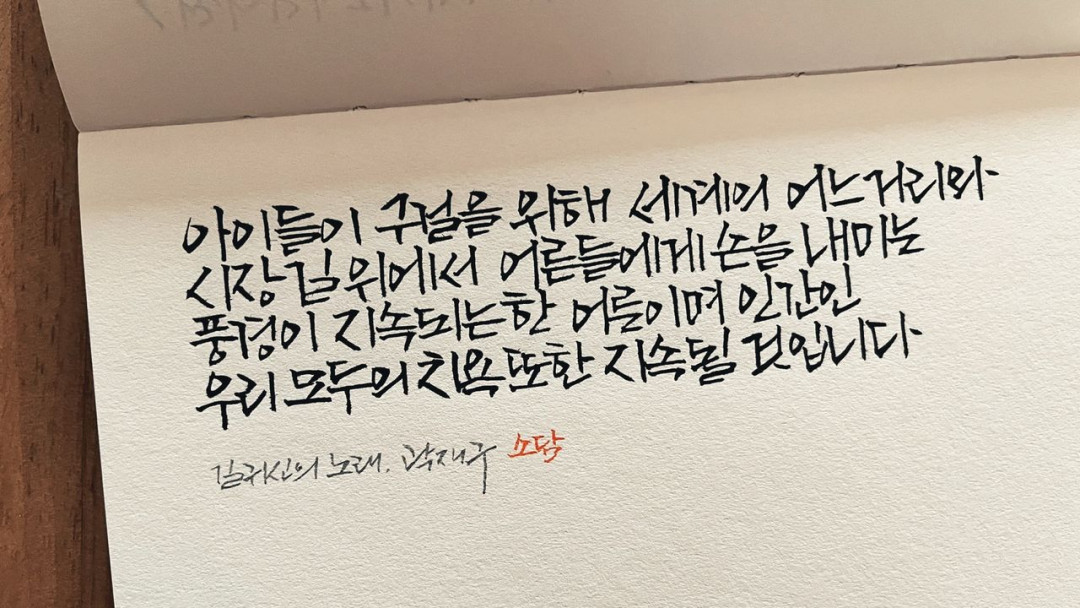 아이들이 구걸을 위해 세계의 어느 거리와
시장 길 위에서 어른들에게 손을 내미는
풍경이 지속되는 한 어름이며 인간인
우리 모두의 치욕 또한 지속될 것입니다
길귀신의 노래. 곽재구 소닭